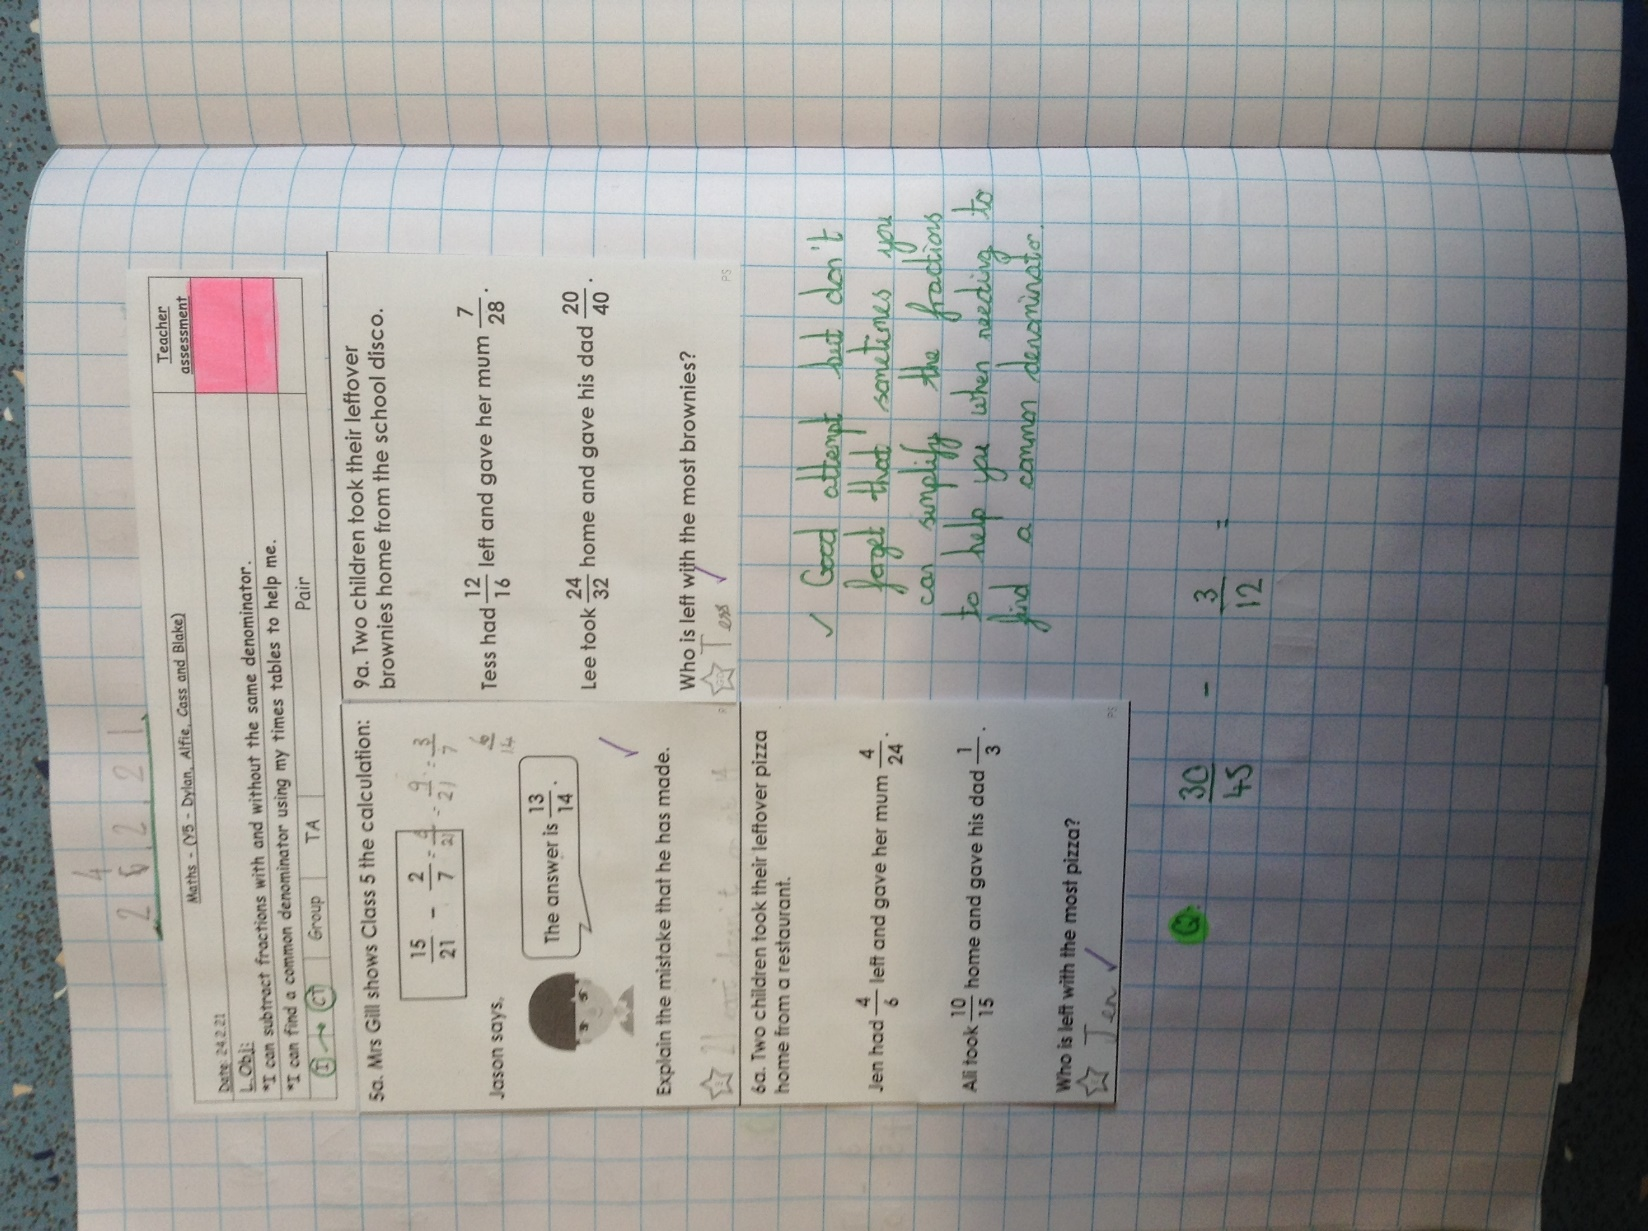 24.2.21
Maths - (Y5 - Dylan, Alfie, Cass and Blake)
Teacher assessment
Date: 24.2.21
L.Obj:
*I can subtract fractions with and without the same denominator.
*I can find a common denominator using my times tables to help me.
I → CT Group TA Pair
5a. Mrs Gill shows Class 5 the calculation:
15/21 - 2/7 = 9/21 = 3/7
6/14
Jason says,
The answer is 13/14.
Explain the mistake that he has made.
R
6a. Two children took their leftover pizza
home from a restaurant.
Jen had 4/6 left and gave her mum 4/24.
Ali took 10/15 home and gave his dad 1/3.
Who is left with the most pizza?
Jen
PS
9a. Two children took their leftover
brownies home from the school disco.
Tess had 12/16 left and gave her mum 7/28.
Lee took 24/32 home and gave his dad 20/40.
Who is left with the most brownies?
Tess
PS
✓ Good attempt but don't
forget that sometimes you
can simplify the fractions
to help you when needing to
find a common denominator.
30/45 - 3/12 =